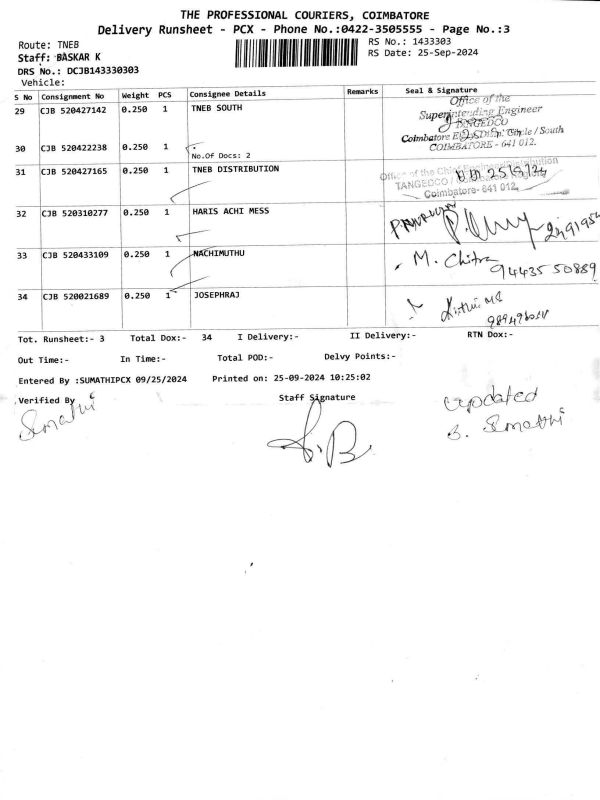 THE PROFESSIONAL COURIERS, COIMBATORE
Delivery Runsheet - PCX - Phone No.:0422-3505555 - Page No.:3
Route: TNEB
RS No.: 1433303
Staff: BASKAR K
RS Date: 25-Sep-2024
DRS No.: DCJB143330303
Vehicle:
S No Consignment No Weight PCS Consignee Details Remarks Seal & Signature
29 CJB 520427142 0.250 1 TNEB SOUTH
Office of the
Superintending Engineer
TANGEDCO
Coimbatore / South
COIMBATORE - 641 012.
30 CJB 520422238 0.250 1 .
No.Of Docs: 2
31 CJB 520427165 0.250 1 TNEB DISTRIBUTION
Office of the Chief Engineer/Distribution
TANGEDCO / Coimbatore Region
Coimbatore- 641 012.
32 CJB 520310277 0.250 1 HARIS ACHI MESS
33 CJB 520433109 0.250 1 NACHIMUTHU
M. Chitra
94435 50889
34 CJB 520021689 0.250 1 JOSEPHRAJ
Tot. Runsheet:- 3 Total Dox:- 34 I Delivery:- II Delivery:- RTN Dox:-
Out Time:- In Time:- Total POD:- Delvy Points:-
Entered By :SUMATHIPCX 09/25/2024 Printed on: 25-09-2024 10:25:02
Verified By Staff Signature
Updated
Sumathi
S. B
S. Sumathi